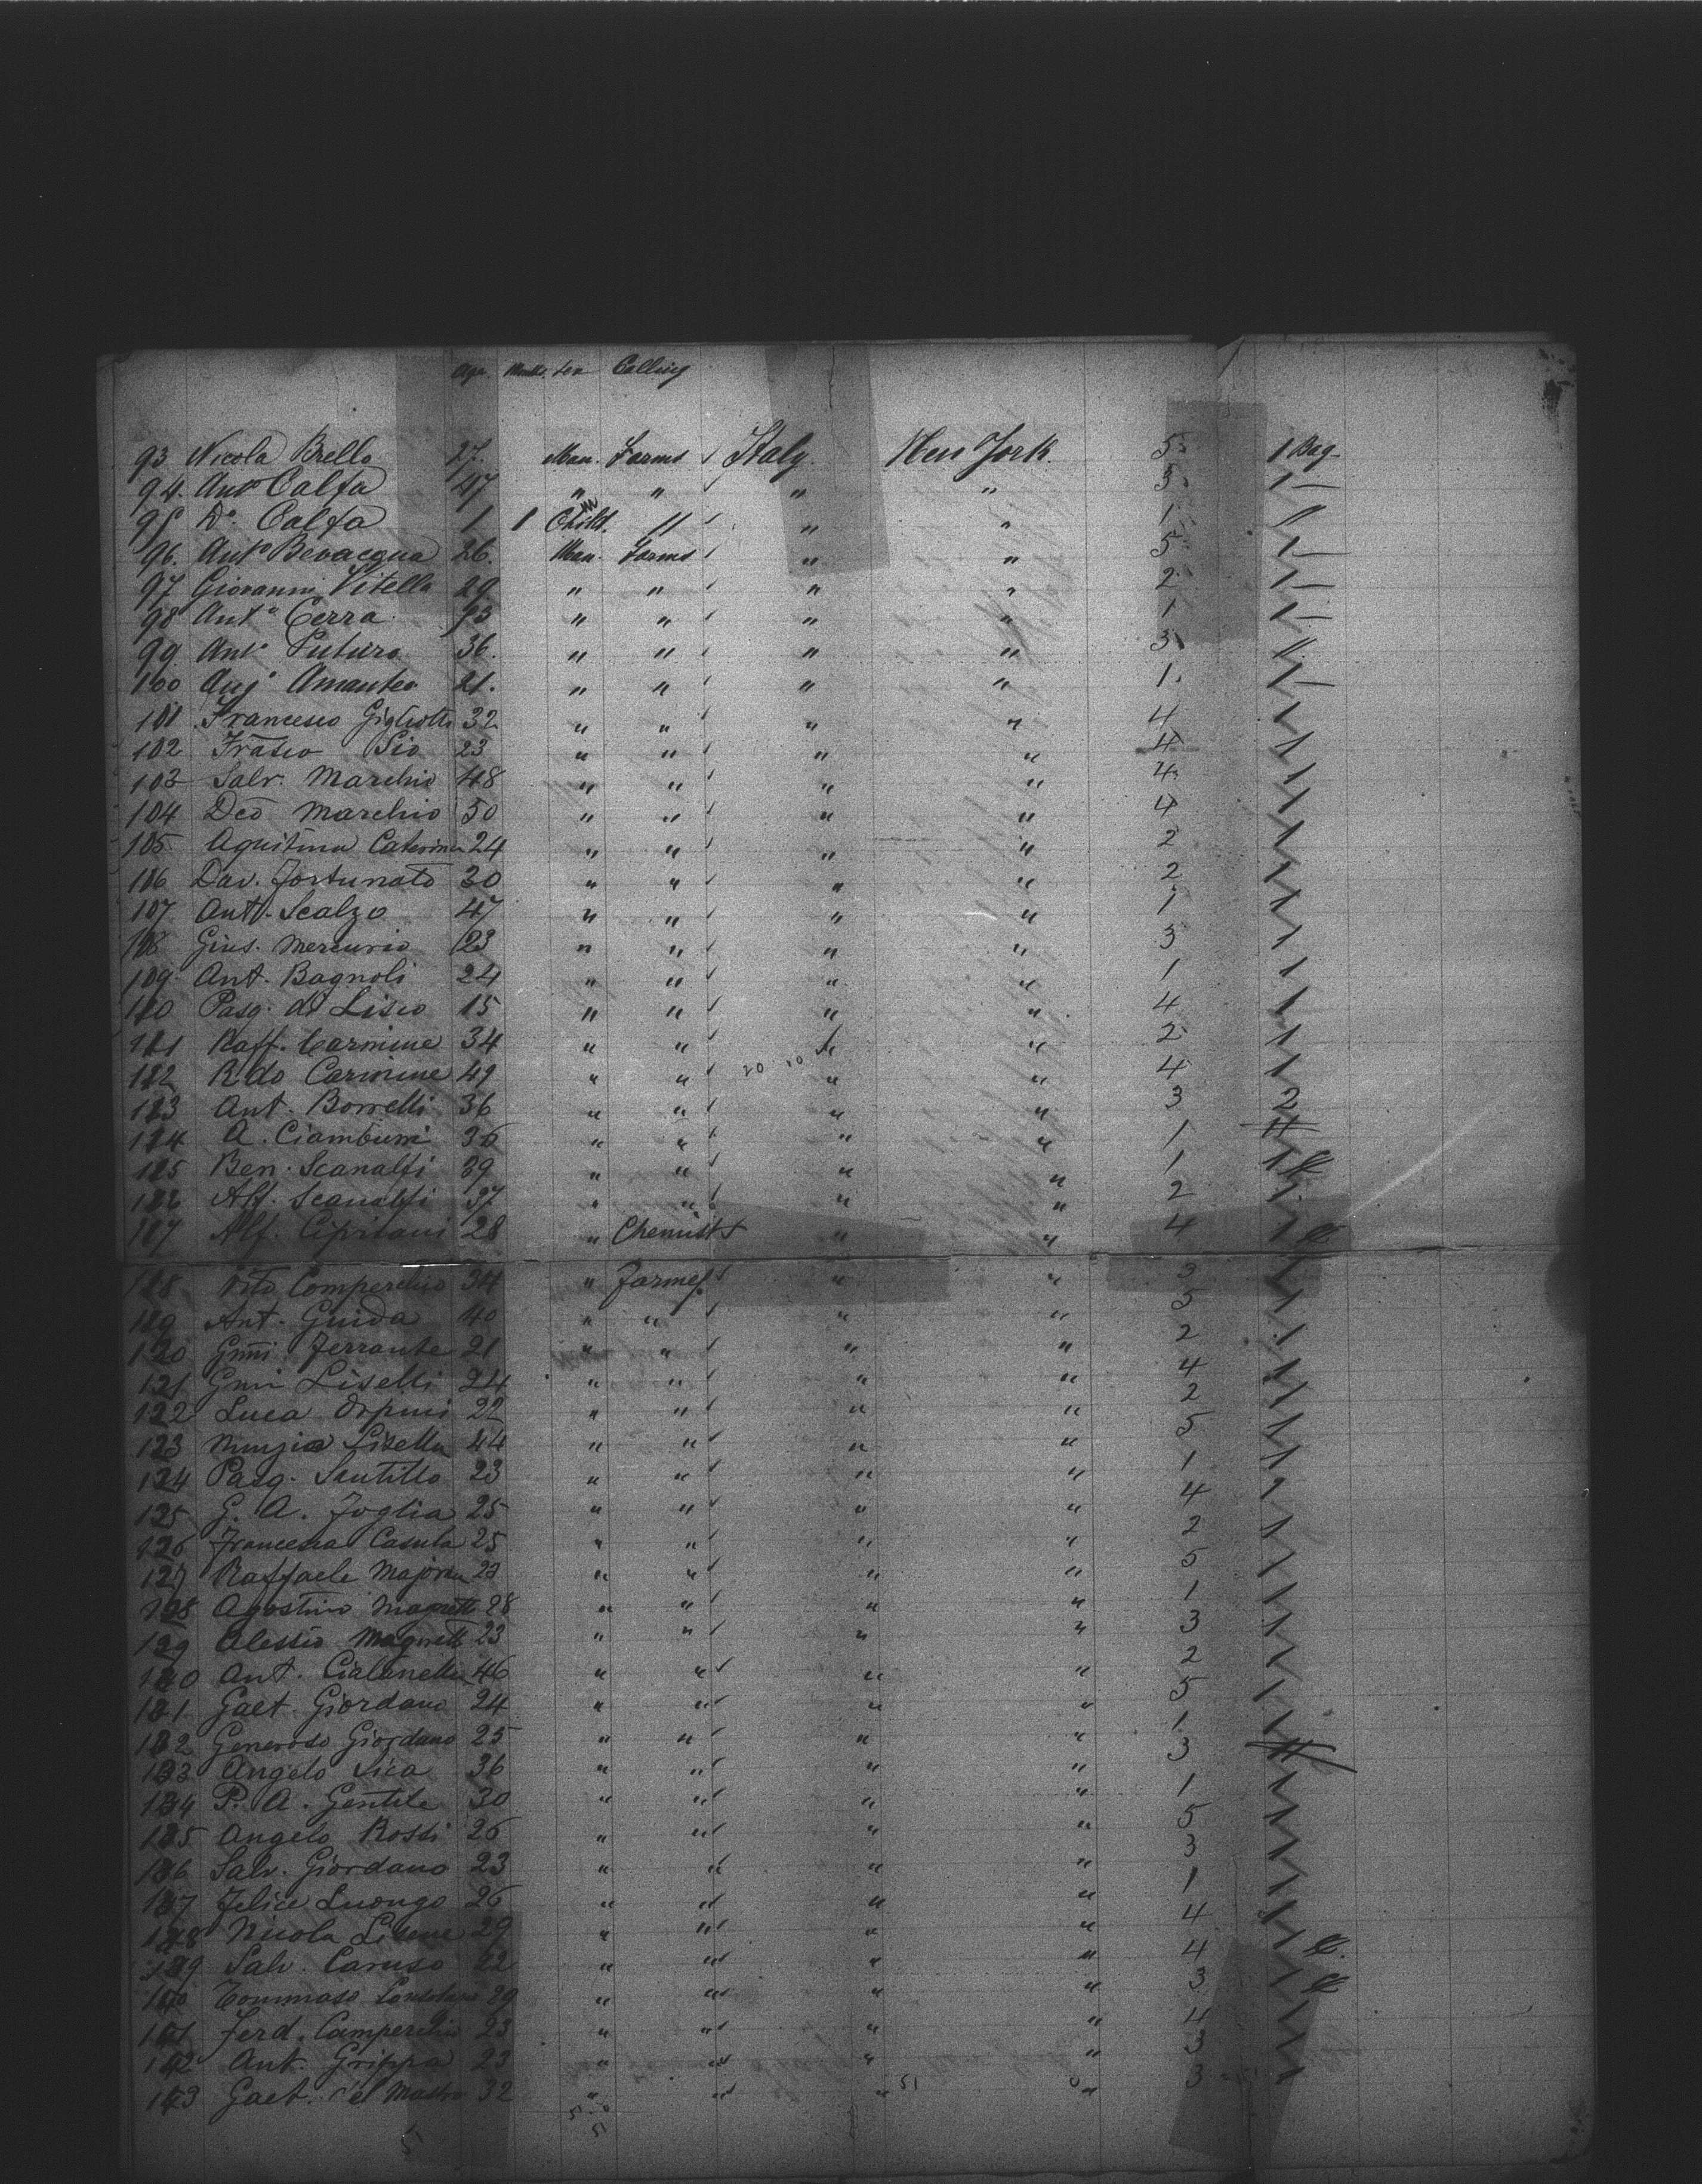 Age. Months. Sex Calling
93 Nicola Brello 27. Man. Farms ✓ Italy. New York. 5 1 Bag
94. Anto Calfa 47 " " ✓ " " 3 1 —
95 Do. Calfa 1 1 Child. " ✓ " " 1 "
96. Anto Bevacqua 26. Man. Farms ✓ " " 5 1 —
97 Giovanni Vitella 29 " " ✓ " " 2 1 —
98 Anto Cerra " " ✓ " " 1 1 —
99. Anto Futura 36. " " ✓ " " 3 "
100 Ang. Amanteo 21. " " ✓ " " 1. 1 —
101 Francesco Gigliotti 32 " " ✓ " " 4 1
102 Frasco Pio 23 " " ✓ " " 4 1
103 Salv. Marchio 48 " " ✓ " " 4 1
104 Deo Marchio 50 " " ✓ " " 4 1
105 Agustina Caterina 24 " " ✓ " " 2 1
106 Dav. Fortunato 30 " " ✓ " " 2 1
107 Ant. Scalzo 47 " " ✓ " " 1 1
108 Gius. Mercurio 23 " " ✓ " " 3 1
109 Ant. Bagnoli 24 " " ✓ " " 1 1
110 Pasq. di Lisio 15 " " ✓ " " 4 1
111 Raff. Carmine 34 " " ✓ " " 2 1
112 Rdo Carmine 49 " " ✓ " " 4 1
113 Ant. Borrelli 36 " " ✓ " " 3 2
114 A. Ciamburri 36 " " ✓ " " 1
115 Ben. Scanalfi 39 " " ✓ " " 1 1
116 Alf. Scanalfi 37 " " ✓ " " 2 1
117 Alf. Cipriani 28 " Chemist " " 4 1
118 Vito Comperchio 34 " Farmer ✓ " " 3 1
119 Ant. Guida 40 " " ✓ " " 3 1
120 Gnni Ferrante 21 " " ✓ " " 2 1
121 Gnni Liselli 24 " " ✓ " " 4 1
122 Luca Orpini 22 " " ✓ " " 2 1
123 Nunzia Lisella 44 " " ✓ " " 5 1
124 Pasq. Santillo 23 " " ✓ " " 1 1
125 G. A. Foglia 25 " " ✓ " " 4 1
126 Francesca Casula 25 " " ✓ " " 2 1
127 Raffaele Majorca 23 " " ✓ " " 5 1
128 Agostino Magnotti 28 " " ✓ " " 1 1
129 Alessio Magnotti 23 " " ✓ " " 3 1
130 Ant. Cialanella 46 " " ✓ " " 2 1
131 Gaet. Giordano 24 " " ✓ " " 5 1
132 Generoso Giordano 25 " " ✓ " " 1 1
133 Angelo Sica 36 " " ✓ " " 3
134 P. A. Gentile 30 " " ✓ " " 1 1
135 Angelo Rossi 26 " " ✓ " " 5 1
136 Salv. Giordano 23 " " ✓ " " 3 1
137 Felice Luongo 26 " " ✓ " " 1 1
138 Nicola Lisene 29 " " ✓ " " 4 1
139 Salv. Caruso 22 " " ✓ " " 4 1
140 Tommaso 29 " " ✓ " " 3 1
141 Ferd. Camperchio 23 " " ✓ " " 4 1
142 Ant. Grippa 23 " " ✓ " " 3 1
143 Gaet. del Mastro 32 " " ✓ " " 3 1